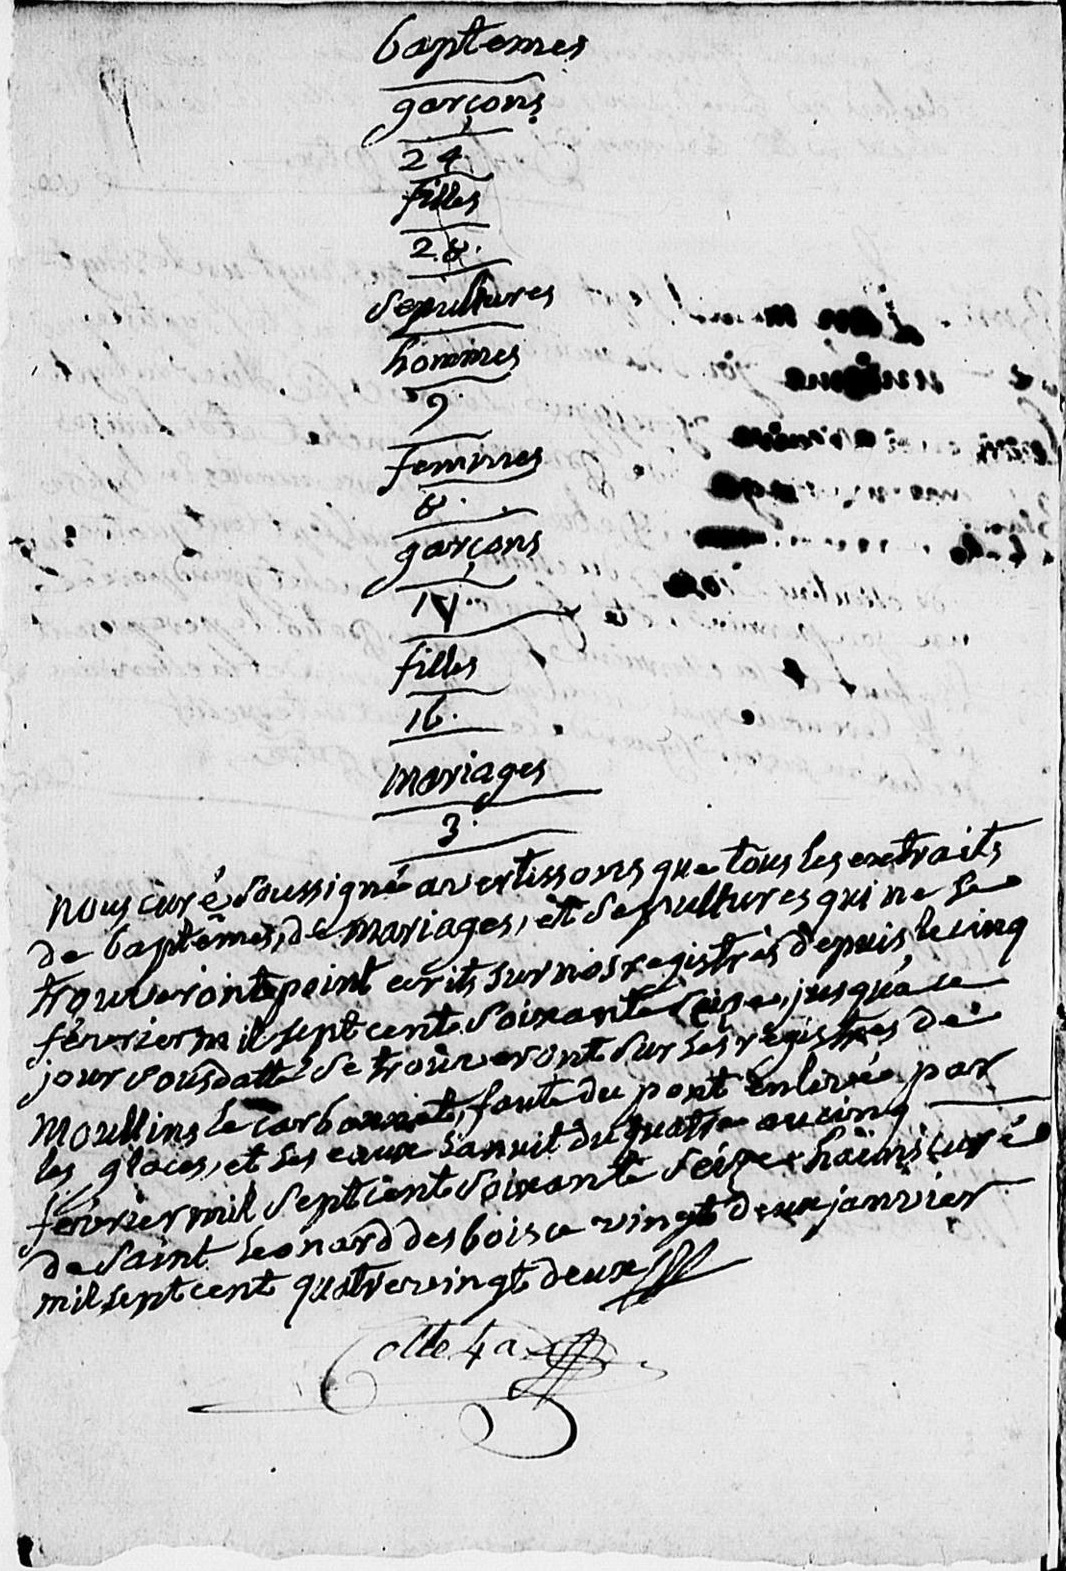 baptemes
garçons
24.
filles
28.
sepultures
hommes
9.
femmes
8.
garçons
14.
filles
16.
mariages
3.
nous curé soussigné avertissons que tous les extraits
de baptêmes, de mariages, et sepultures qui ne se
trouveront point ecrits sur nos registres depuis, le cinq
février mil sept cent soixante seize, jusqu'à ce
jour sousdatté se trouveront sur les régistres de
Moullins le carbonnet, faute du pont enlevée par
les glaces, et les eaux la nuit du quatre au cinq
février mil sept cent soixante seize haims curé
de saint Leonard des bois ce vingt deux janvier
mil sept cent quatre vingt deux
Cotte 4 a